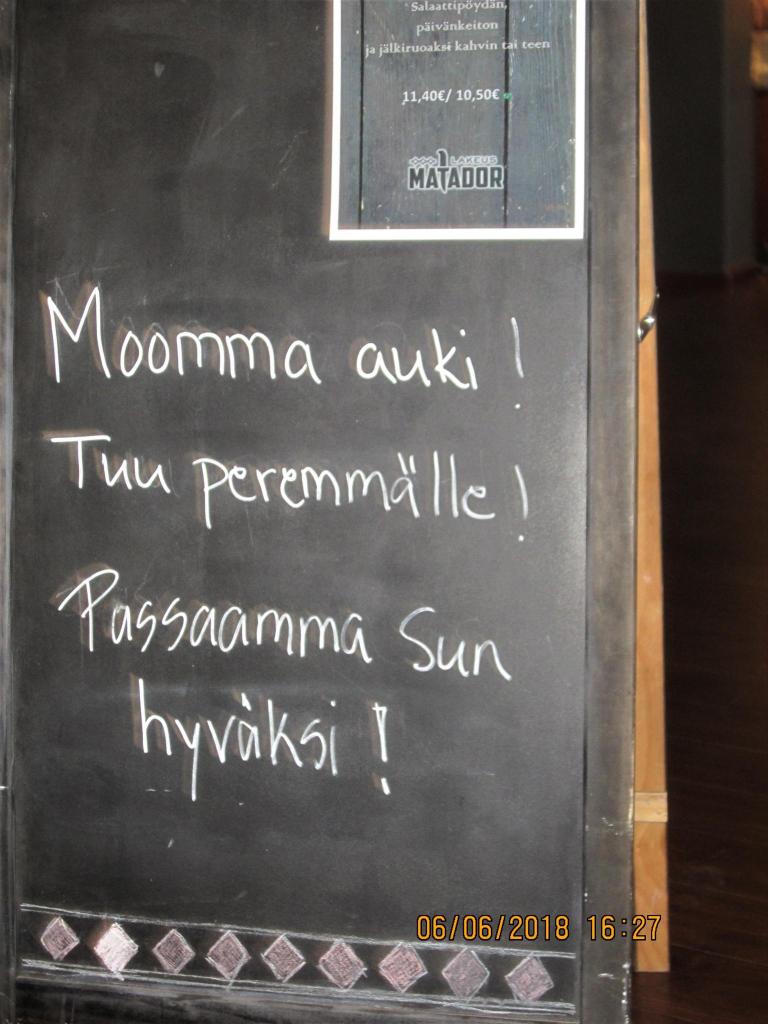 Salaattipöydän,
päivänkeiton
ja jälkiruoaksi kahvin tai teen
11,40€/ 10,50€
LAKEUS
MATADOR
Moomma auki !
Tuu peremmälle !
Passaamma Sun
hyväksi !
06/06/2018 16:27